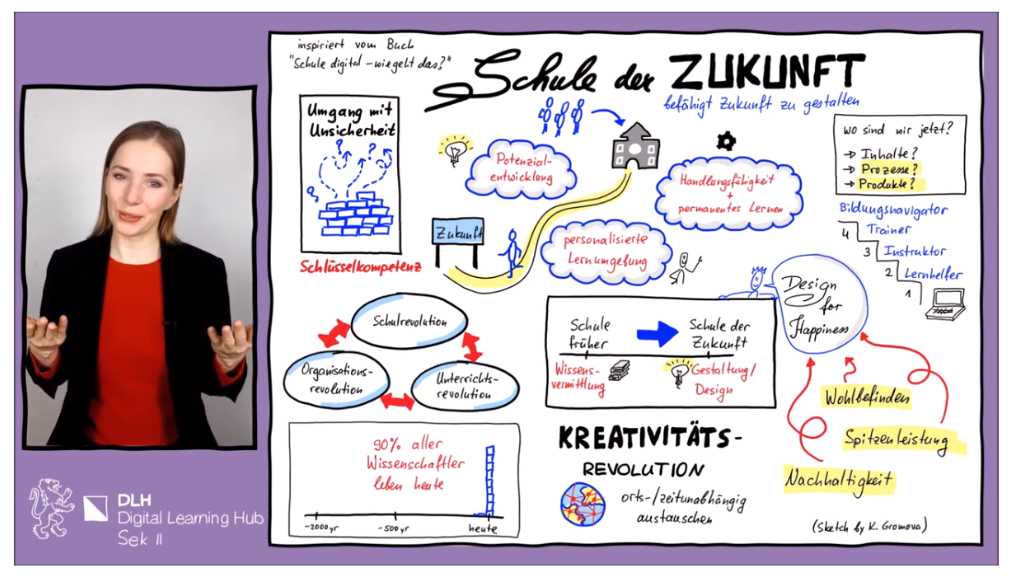 inspiriert vom Buch
"Schule digital – wie geht das?"
Schule der ZUKUNFT
befähigt Zukunft zu gestalten
Umgang mit
Unsicherheit
? ? ? ?
Schlüsselkompetenz
Potenzial-
entwicklung
Handlungsfähigkeit
+
permanentes Lernen
Zukunft
personalisierte
Lernumgebung
wo sind wir jetzt?
→ Inhalte?
→ Prozesse?
→ Produkte?
Bildungsnavigator
4 Trainer
3 Instruktor
2 Lernhelfer
1
Design
for
Happiness
Schulrevolution
Organisations-
revolution
Unterrichts-
revolution
Schule
früher
Schule der
Zukunft
Wissens-
vermittlung
Gestaltung/
Design
Wohlbefinden
Spitzenleistung
Nachhaltigkeit
90% aller
Wissenschaftler
leben heute
-2000 yr -500 yr heute
KREATIVITÄTS-
REVOLUTION
orts-/zeitunabhängig
austauschen
(Sketch by K. Gromova)
DLH
Digital Learning Hub
Sek II